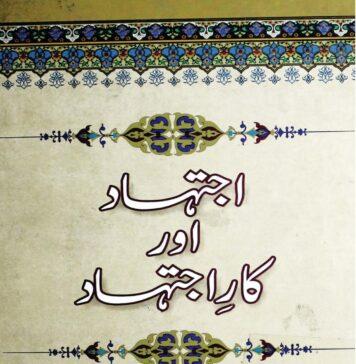 اجتہاد
اور
کارِ اجتہاد